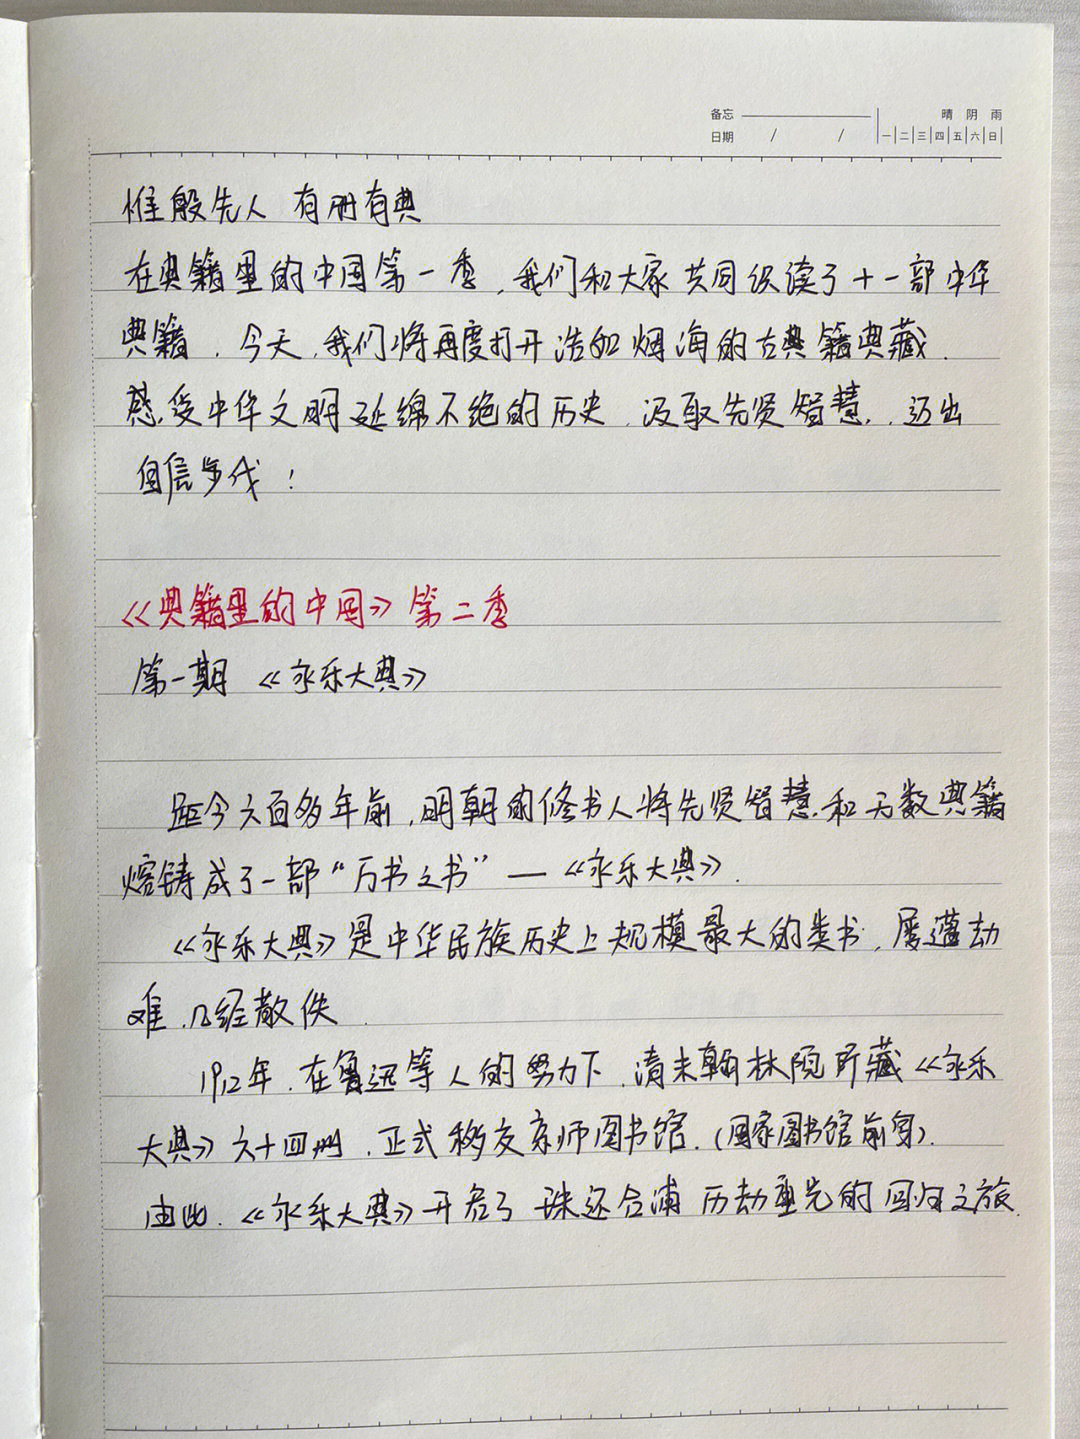 备忘
晴 阴 雨
日期 / /
一 二 三 四 五 六 日
惟殷先人 有册有典
在典籍里的中国第一季,我们和大家共同识读了十一部中华
典籍.今天,我们将再度打开浩如烟海的古典籍典藏.
感受中华文明延绵不绝的历史.汲取先贤智慧..迈出
自信步伐!
《典籍里的中国》第二季
第一期 《永乐大典》
距今六百多年前,明朝的修书人将先贤智慧.和无数典籍
熔铸成了一部“万书之书”—《永乐大典》.
《永乐大典》是中华民族历史上规模最大的类书.屡遭劫
难.几经散佚.
1912年.在鲁迅等人的努力下.清末翰林院所藏《永乐
大典》六十四册.正式移交京师图书馆.(国家图书馆前身).
由此.《永乐大典》开启了 珠还合浦 历劫重光的回归之旅.